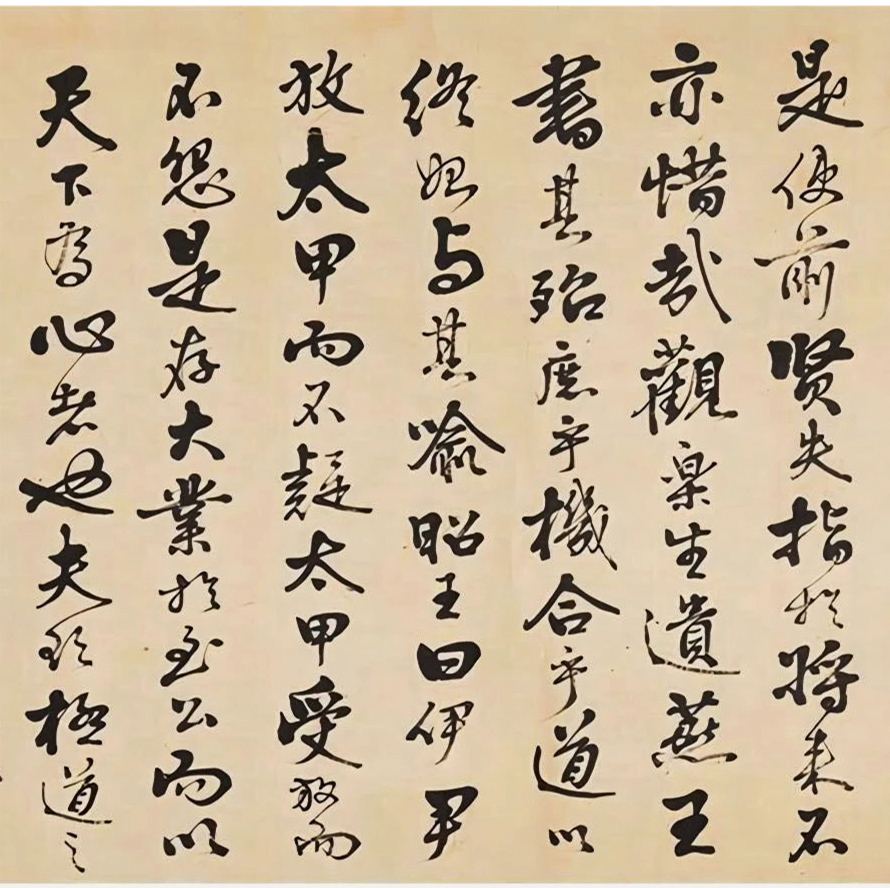 是使前贤失指於将来不
亦惜哉觀楽生遺燕王
書其殆庶乎機合乎道以
终始与其喻昭王曰伊尹
放太甲而不疑太甲受放而
不怨是存大業於至公而以
天下為心者也夫欲極道之